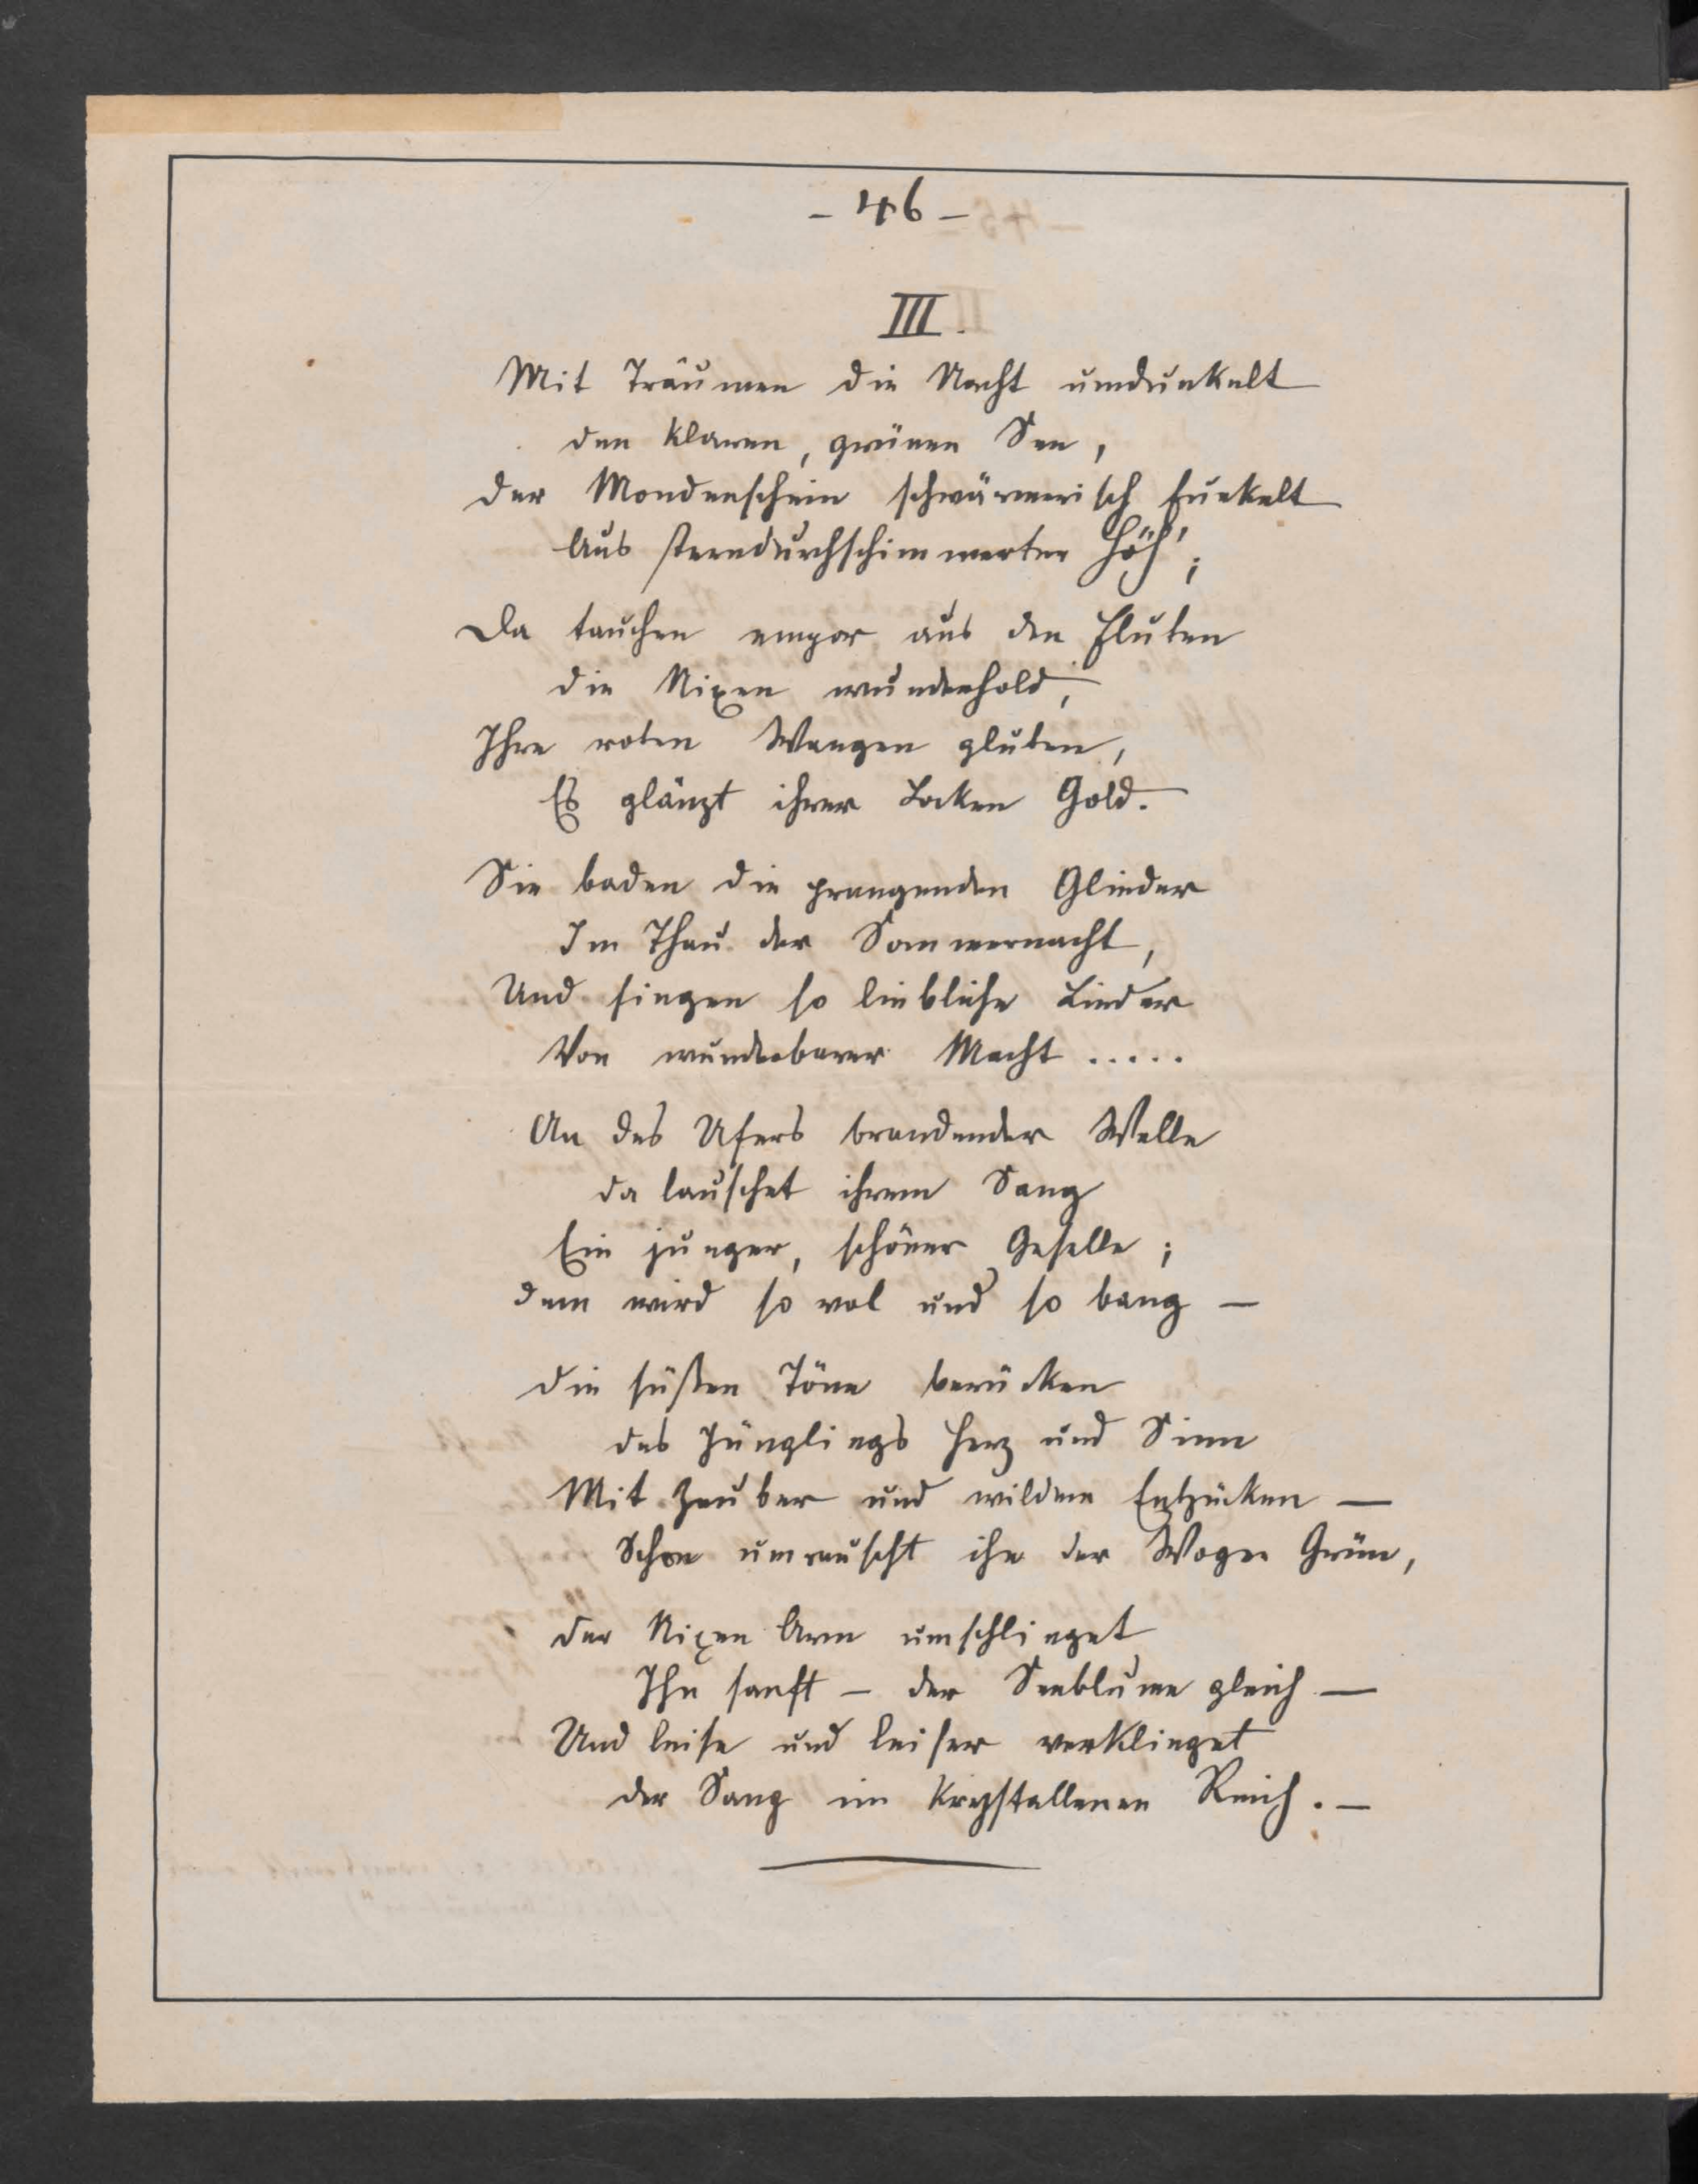 - 46 -
III.
Mit Träumen die Nacht umdunkelt
den klaren, grünen See,
der Mondenschein schwärmerisch funkelt
Aus sterndurchschimmerter Höh';
Da tauchen empor aus den Fluten
die Nixen wunderhold,
Ihre roten Wangen gluten,
Es glänzt ihrer Locken Gold.
Sie baden die prangenden Glieder
Im Thau der Sommernacht,
Und singen so liebliche Lieder
Von wunderbarer Macht .....
An des Ufers brandender Welle
da lauschet ihrem Sang
Ein junger, schöner Geselle;
dem wird so wol und so bang —
die süßen Töne berücken
des Jünglings Herz und Sinn
Mit Zauber und wildem Entzücken —
Schon umrauscht ihn der Wogen Grün,
der Nixen Arm umschlinget
Ihn sanft — der Seeblume gleich —
Und leise und leiser verklinget
der Sang im krystallenen Reich. —